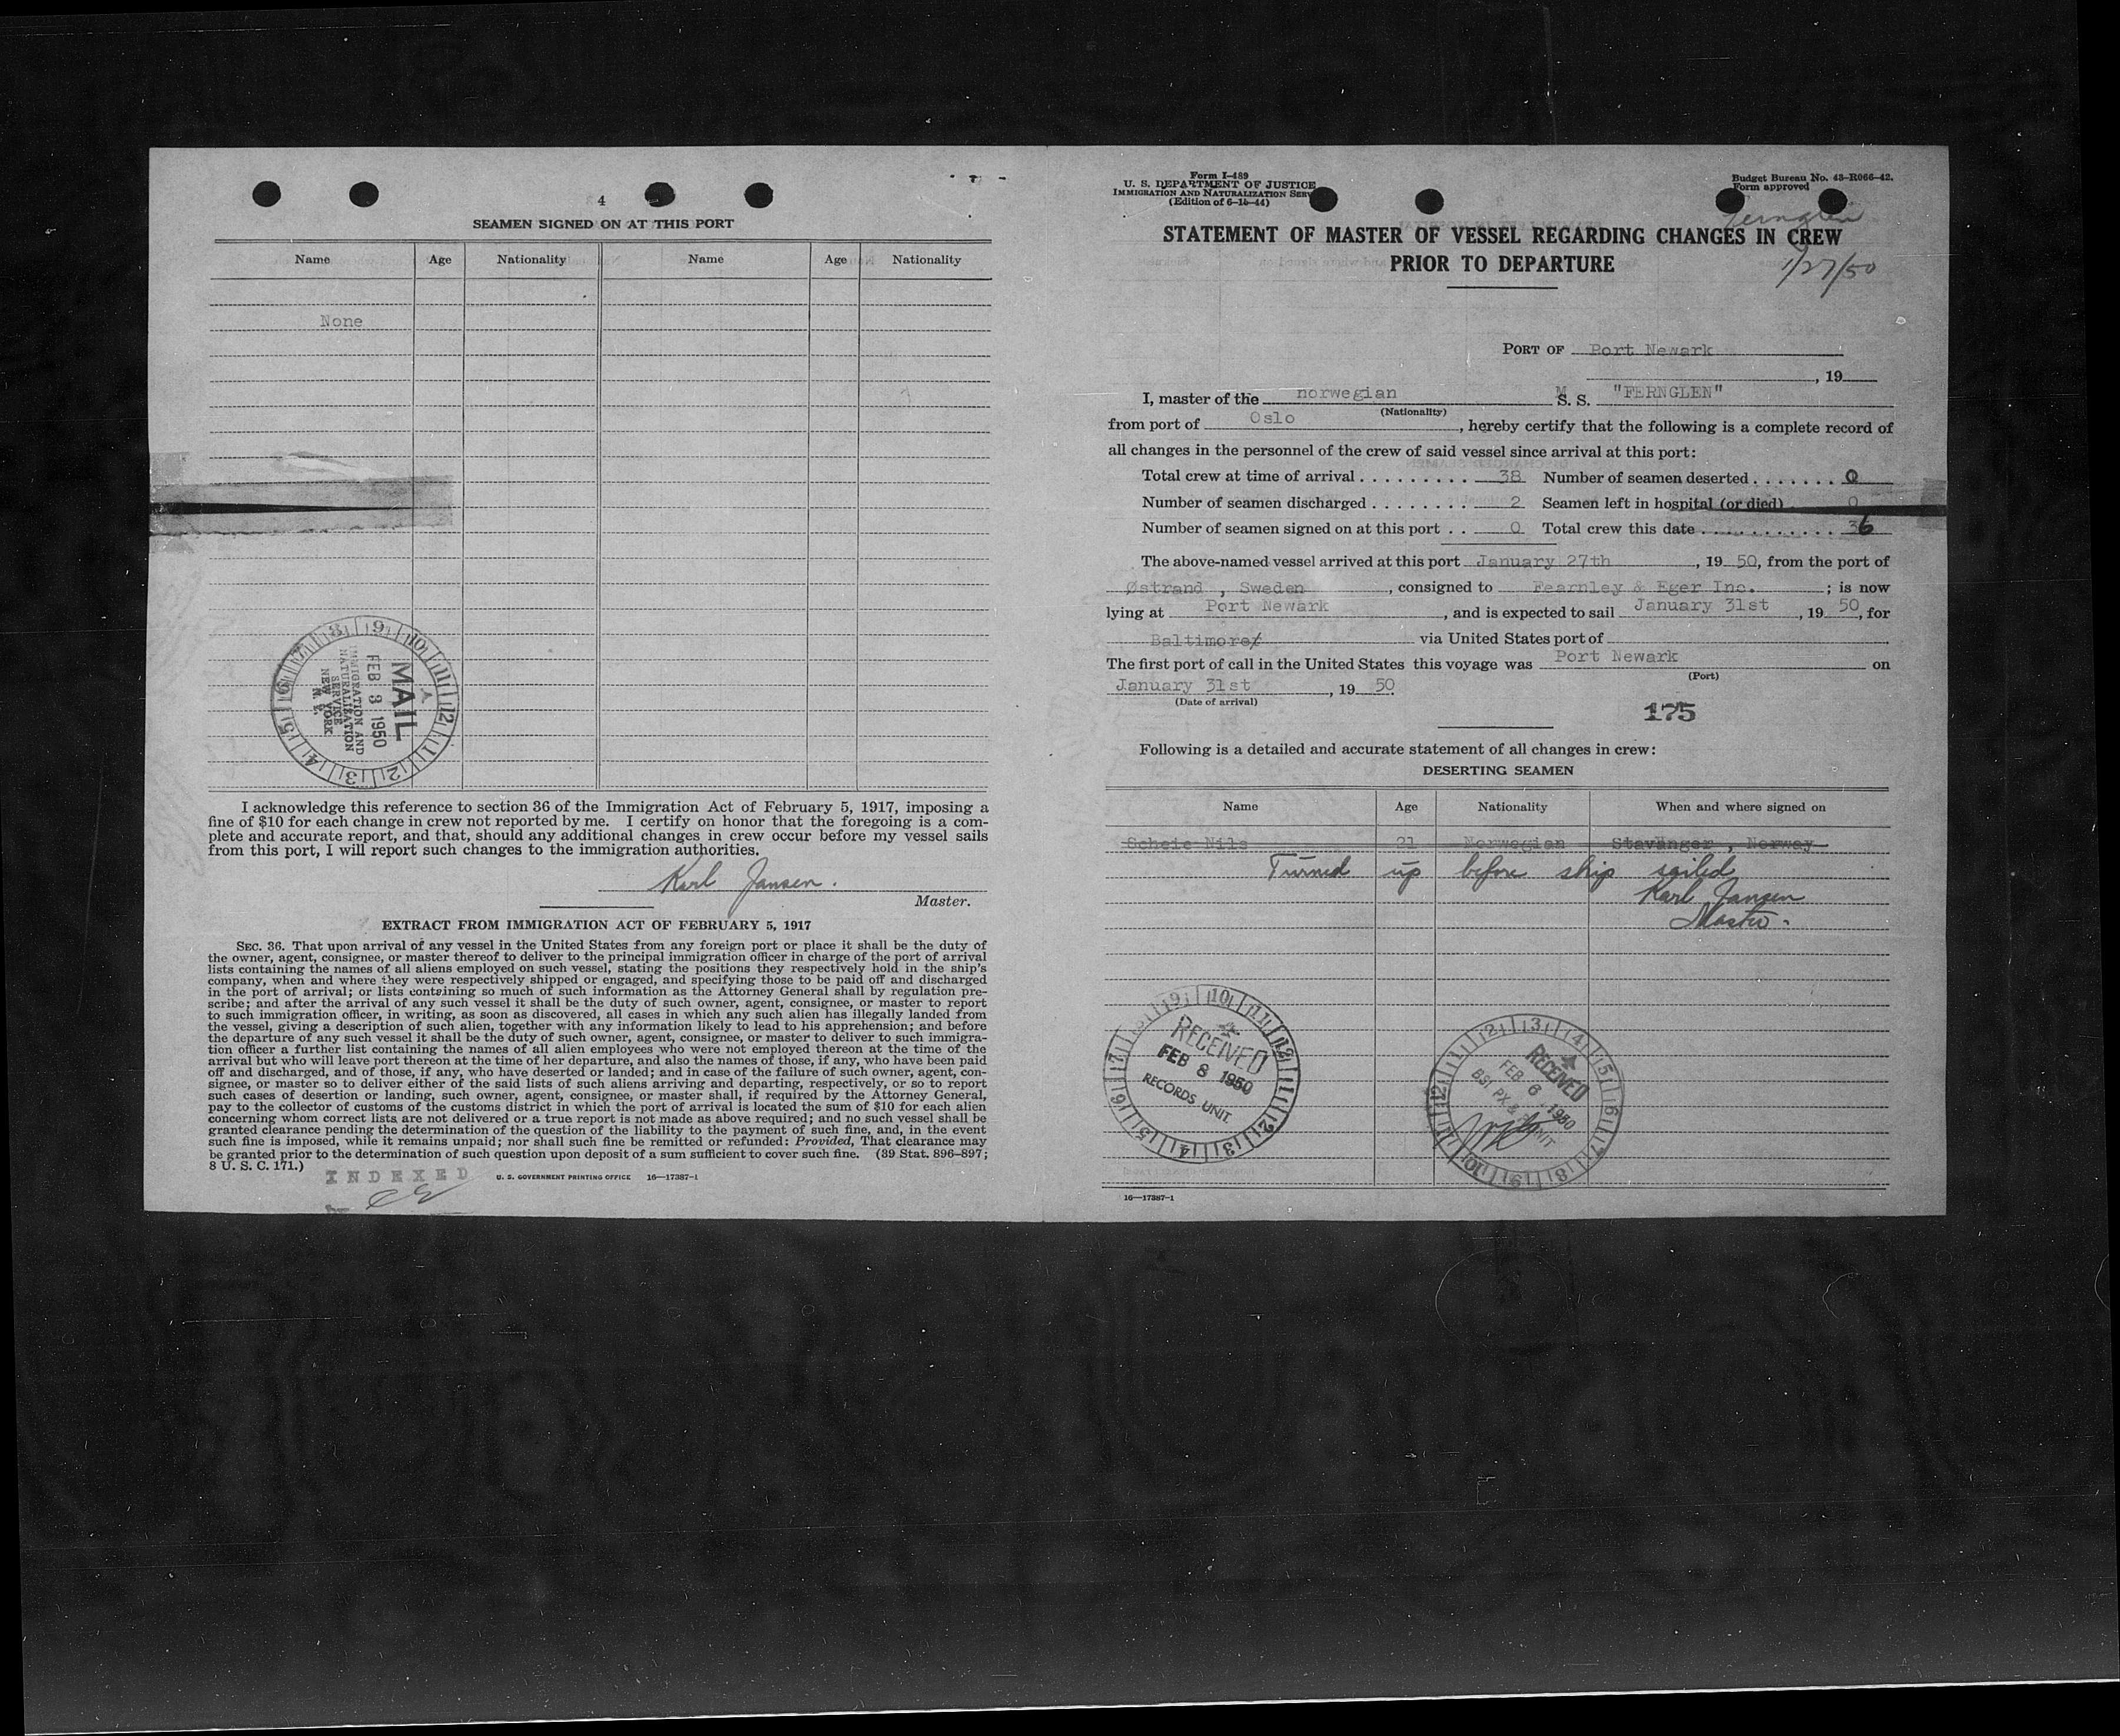 4
SEAMEN SIGNED ON AT THIS PORT
Name Age Nationality Name Age Nationality
None
MAIL
FEB 8 1950
IMMIGRATION AND
NATURALIZATION
SERVICE
NEW YORK
N. Y.
I acknowledge this reference to section 36 of the Immigration Act of February 5, 1917, imposing a
fine of $10 for each change in crew not reported by me. I certify on honor that the foregoing is a com-
plete and accurate report, and that, should any additional changes in crew occur before my vessel sails
from this port, I will report such changes to the immigration authorities.
Karl Jansen.
Master.
EXTRACT FROM IMMIGRATION ACT OF FEBRUARY 5, 1917
SEC. 36. That upon arrival of any vessel in the United States from any foreign port or place it shall be the duty of
the owner, agent, consignee, or master thereof to deliver to the principal immigration officer in charge of the port of arrival
lists containing the names of all aliens employed on such vessel, stating the positions they respectively hold in the ship's
company, when and where they were respectively shipped or engaged, and specifying those to be paid off and discharged
in the port of arrival; or lists containing so much of such information as the Attorney General shall by regulation pre-
scribe; and after the arrival of any such vessel it shall be the duty of such owner, agent, consignee, or master to report
to such immigration officer, in writing, as soon as discovered, all cases in which any such alien has illegally landed from
the vessel, giving a description of such alien, together with any information likely to lead to his apprehension; and before
the departure of any such vessel it shall be the duty of such owner, agent, consignee, or master to deliver to such immigra-
tion officer a further list containing the names of all alien employees who were not employed thereon at the time of the
arrival but who will leave port thereon at the time of her departure, and also the names of those, if any, who have been paid
off and discharged, and of those, if any, who have deserted or landed; and in case of the failure of such owner, agent, con-
signee, or master so to deliver either of the said lists of such aliens arriving and departing, respectively, or so to report
such cases of desertion or landing, such owner, agent, consignee, or master shall, if required by the Attorney General,
pay to the collector of customs of the customs district in which the port of arrival is located the sum of $10 for each alien
concerning whom correct lists are not delivered or a true report is not made as above required; and no such vessel shall be
granted clearance pending the determination of the question of the liability to the payment of such fine, and, in the event
such fine is imposed, while it remains unpaid; nor shall such fine be remitted or refunded: Provided, That clearance may
be granted prior to the determination of such question upon deposit of a sum sufficient to cover such fine. (39 Stat. 896–897;
8 U. S. C. 171.)
INDEXED
U. S. GOVERNMENT PRINTING OFFICE 16—17387-1
Form I-489
U. S. DEPARTMENT OF JUSTICE
IMMIGRATION AND NATURALIZATION SERV
(Edition of 6-15-44)
Budget Bureau No. 43-R066-42.
Form approved
Fernglen
1/27/50
STATEMENT OF MASTER OF VESSEL REGARDING CHANGES IN CREW
PRIOR TO DEPARTURE
PORT OF Port Newark
, 19
I, master of the norwegian M S. S. "FERNGLEN"
(Nationality)
from port of Oslo, hereby certify that the following is a complete record of
all changes in the personnel of the crew of said vessel since arrival at this port:
Total crew at time of arrival . . . . . . . . . 38 Number of seamen deserted . . . . . . . 0
Number of seamen discharged . . . . . . . . 2 Seamen left in hospital (or died) . 0
Number of seamen signed on at this port . . 0 Total crew this date . . . . . . . . . . . . 36
The above-named vessel arrived at this port January 27th, 19 50, from the port of
Østrand , Sweden, consigned to Fearnley & Eger Inc. ; is now
lying at Port Newark, and is expected to sail January 31st, 19 50, for
Baltimore via United States port of
The first port of call in the United States this voyage was Port Newark on
(Port)
January 31st, 19 50
(Date of arrival)
175
Following is a detailed and accurate statement of all changes in crew:
DESERTING SEAMEN
Name Age Nationality When and where signed on
Scheie Nils 21 Norwegian Stavanger , Norway
Turned up before ship sailed
Karl Jansen
Master.
RECEIVED
FEB 8 1950
RECORDS UNIT.
RECEIVED
FEB 6 1950
BSI PX & UNIT
16—17387-1